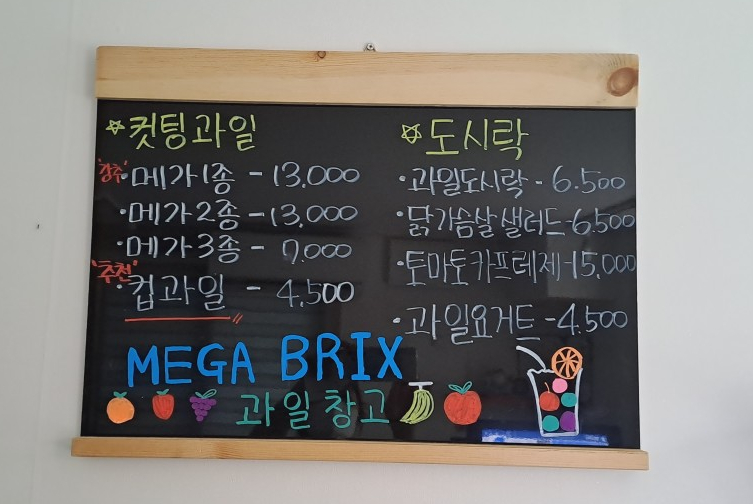 ☆컷팅과일
'강추'·메가1종 - 13,000
·메가2종 - 13,000
·메가3종 - 9,000
'추천'·컵과일 - 4,500
☆도시락
·과일도시락 - 6.500
·닭가슴살샐러드-6.500
·토마토카프레제-15,000
·과일요거트 -4.500
MEGA BRIX
과일창고